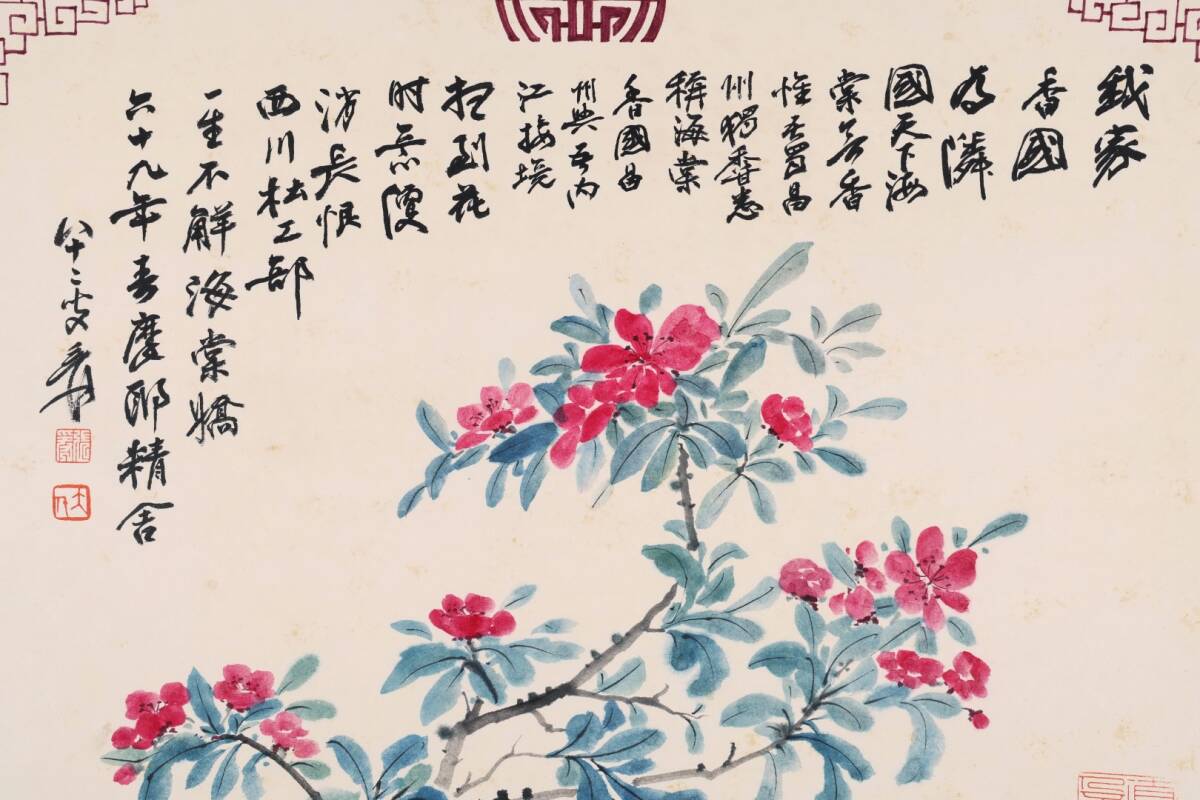 我家
香國
为隣
國天下海
棠无香
惟吾蜀昌
州獨香志
稱海棠
香國昌
州與吾內
江接境
想到花
时意便
消長恨
西川杜工部
一生不解海棠嬌
六十九年春摩耶精舍
八十二叟爰